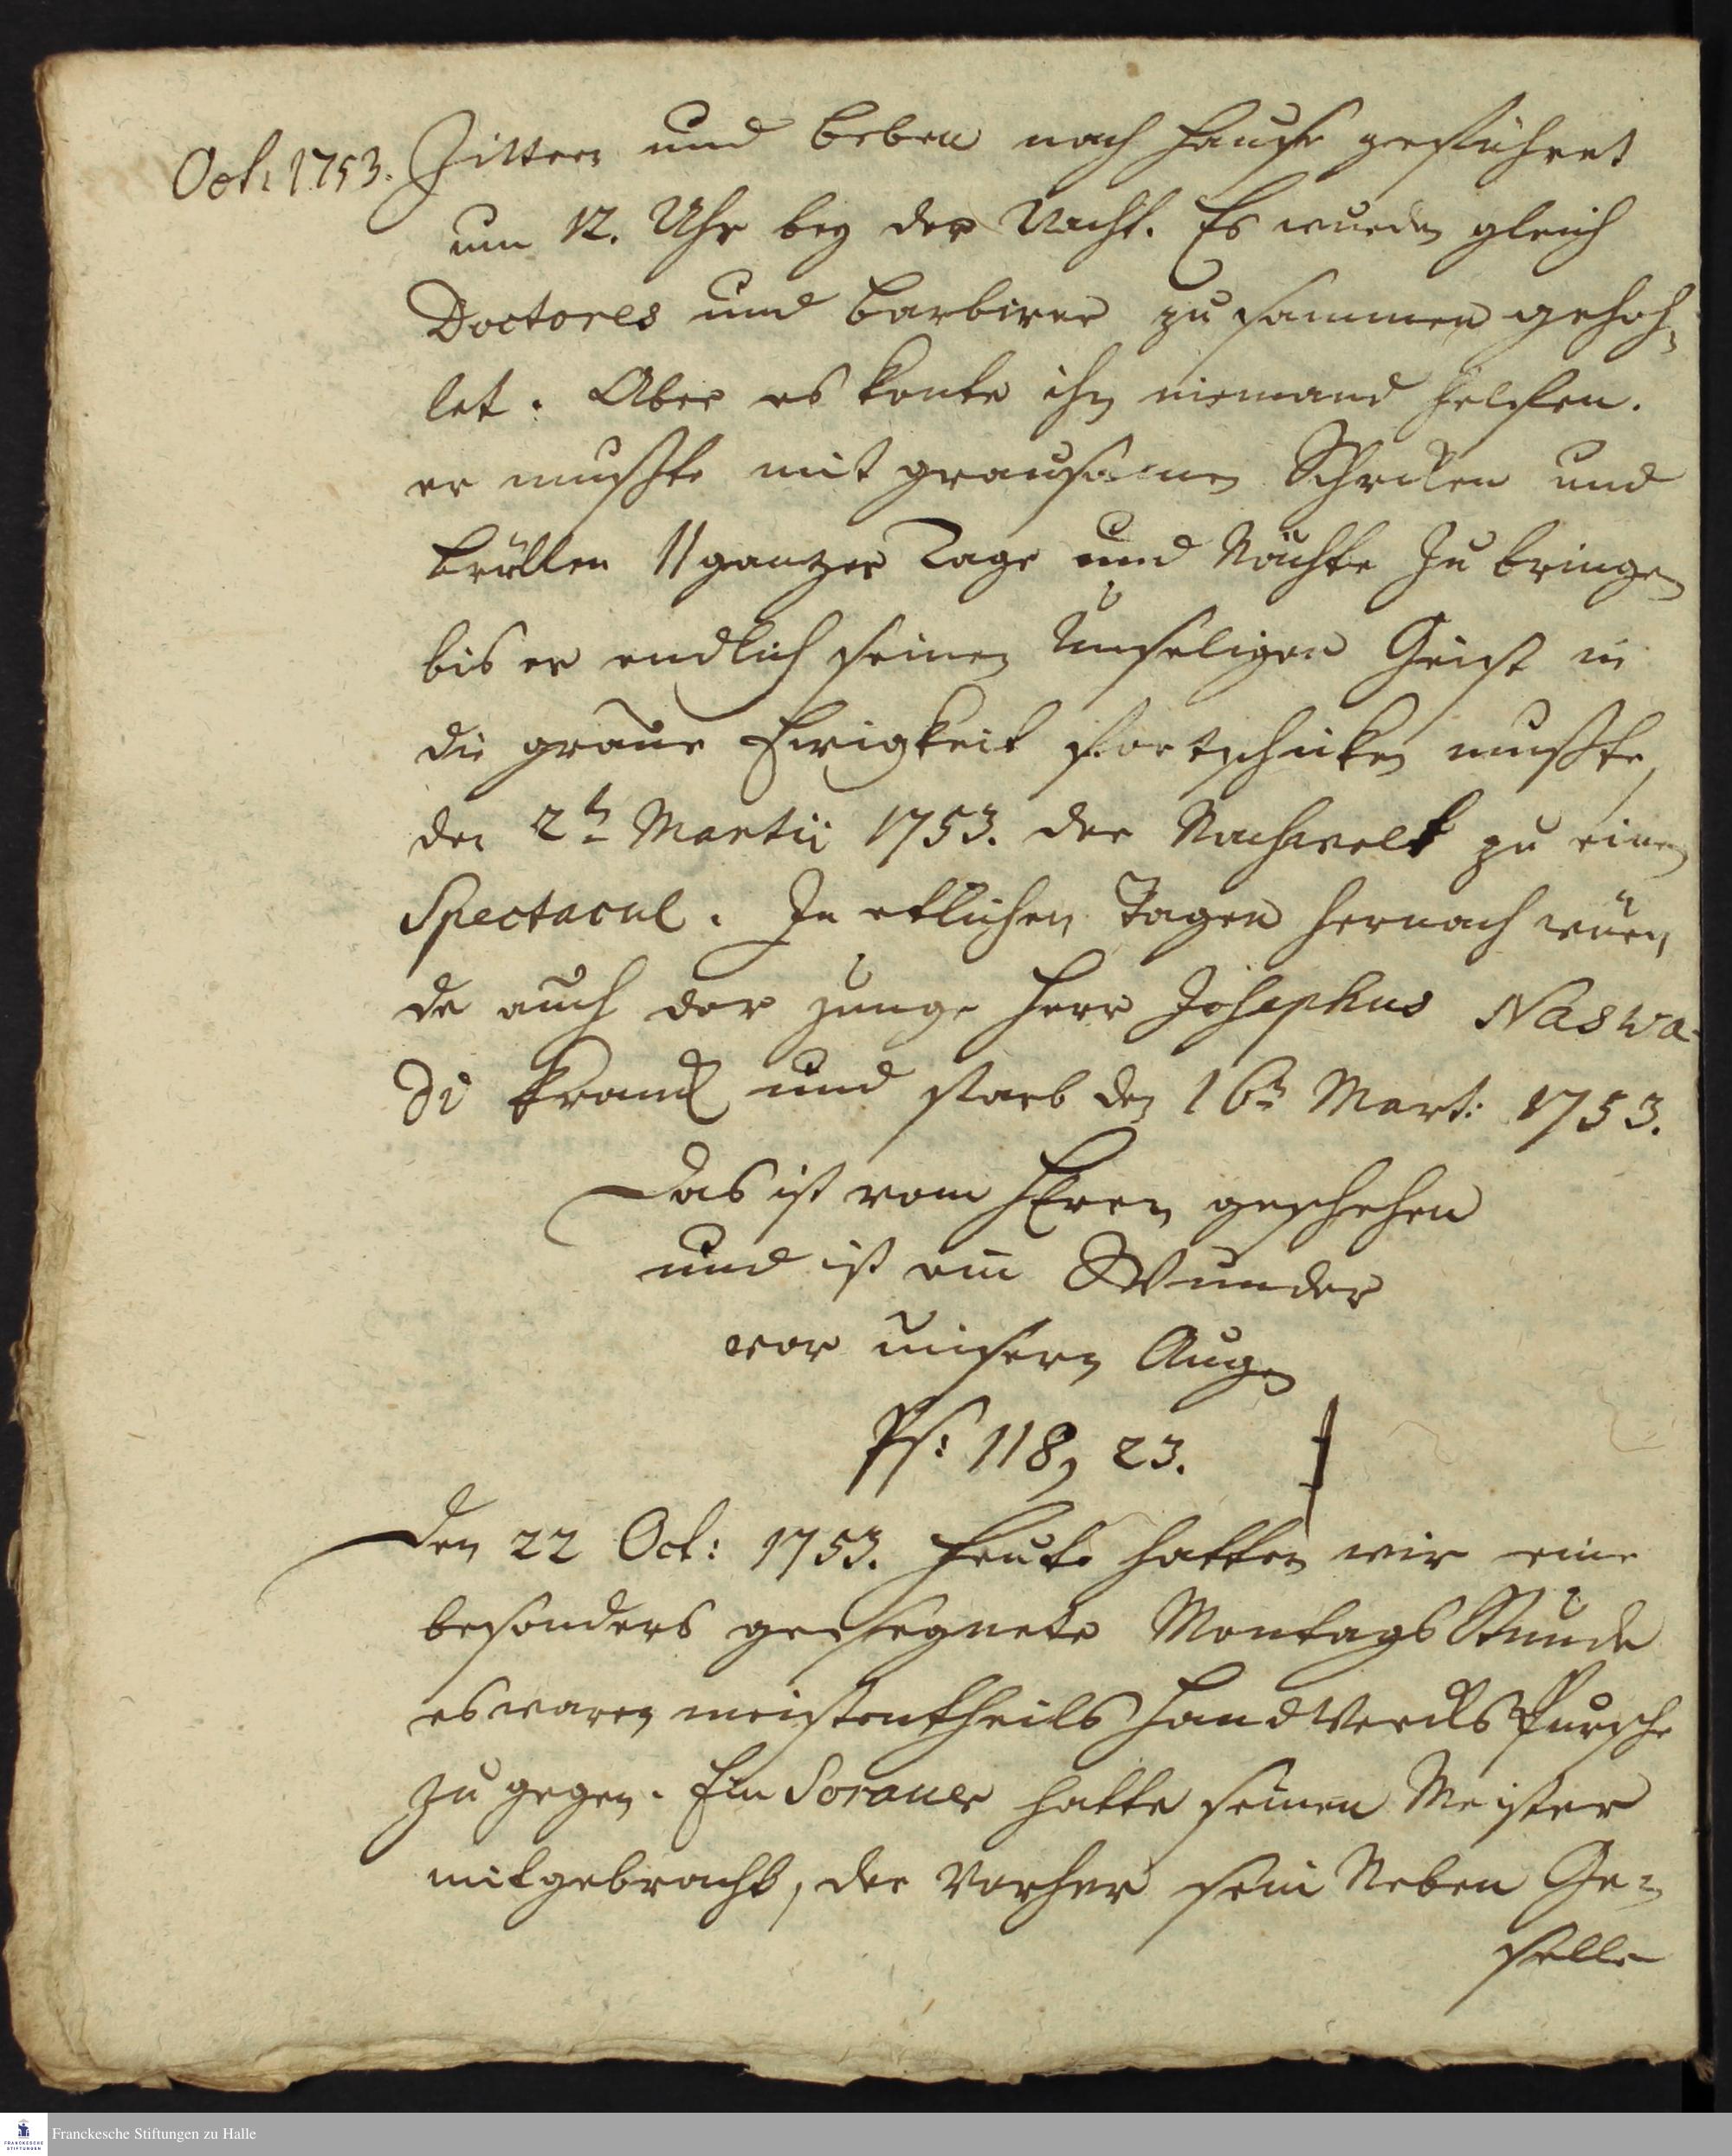 Oct: 1753. Zittern und beben nach Hause geführet
um 12. Uhr bey der Nacht. Es wurden gleich
Doctores und Barbirer zusammen gehoh-
let. Aber es konte ihn niemand helffen.
er mußte mit grausamen Schreken und
brüllen 11 ganzer Tage und Nächte zu bringen
bis er endlich seinen unseligen Geist in
die graue Ewigkeit fortschicken mußte,
den 2tn Martii 1753. der Nachwelt zu einen
Spectacul. In etlichen Tagen hernach wur-
de auch der junge Herr Josephus Naswa-
di kranck und starb den 16tn Mart: 1753.
Das ist vom HErrn geschehen
und ist ein Wunder
vor unsern Augen
Ps: 118, 23.
Den 22 Oct: 1753. Heute hatten wir eine
besonders geseegnete Montags Stunde
es waren meistentheils Handwercks Pursche
zu gegen. Ein Sorauer hatte seinen Meister
mitgebracht, der vorher sein Neben Ge-
selle
FRANCKESCHE
STIFTUNGEN
Franckesche Stiftungen zu Halle